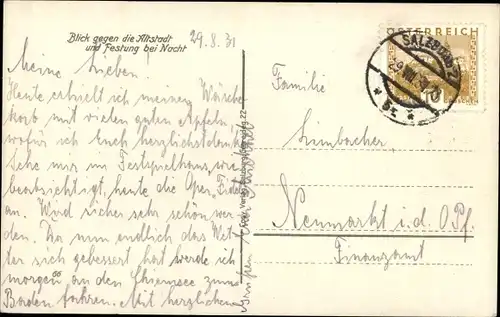 Blick gegen die Altstadt
und Festung bei Nacht
29.8.31
Meine Lieben!
Heute erhielt ich meinen Wäsche
korb mit vielen guten Äpfeln,
wofür ich Euch herzlichst danke.
Sehe mir im Festspielhaus, wie
beabsichtigt, heute die Oper "Fidelio"
an. Wird sicher sehr schön wer-
den. Da nun endlich das Wet-
ter sich gebessert hat werde ich
morgen an den Chiemsee zum
Baden fahren. Mit herzlichen
ÖSTERREICH
SALZBURG 2
10
Familie
Simbacher
Neumarkt i.d. O.Pf.
Finanzamt